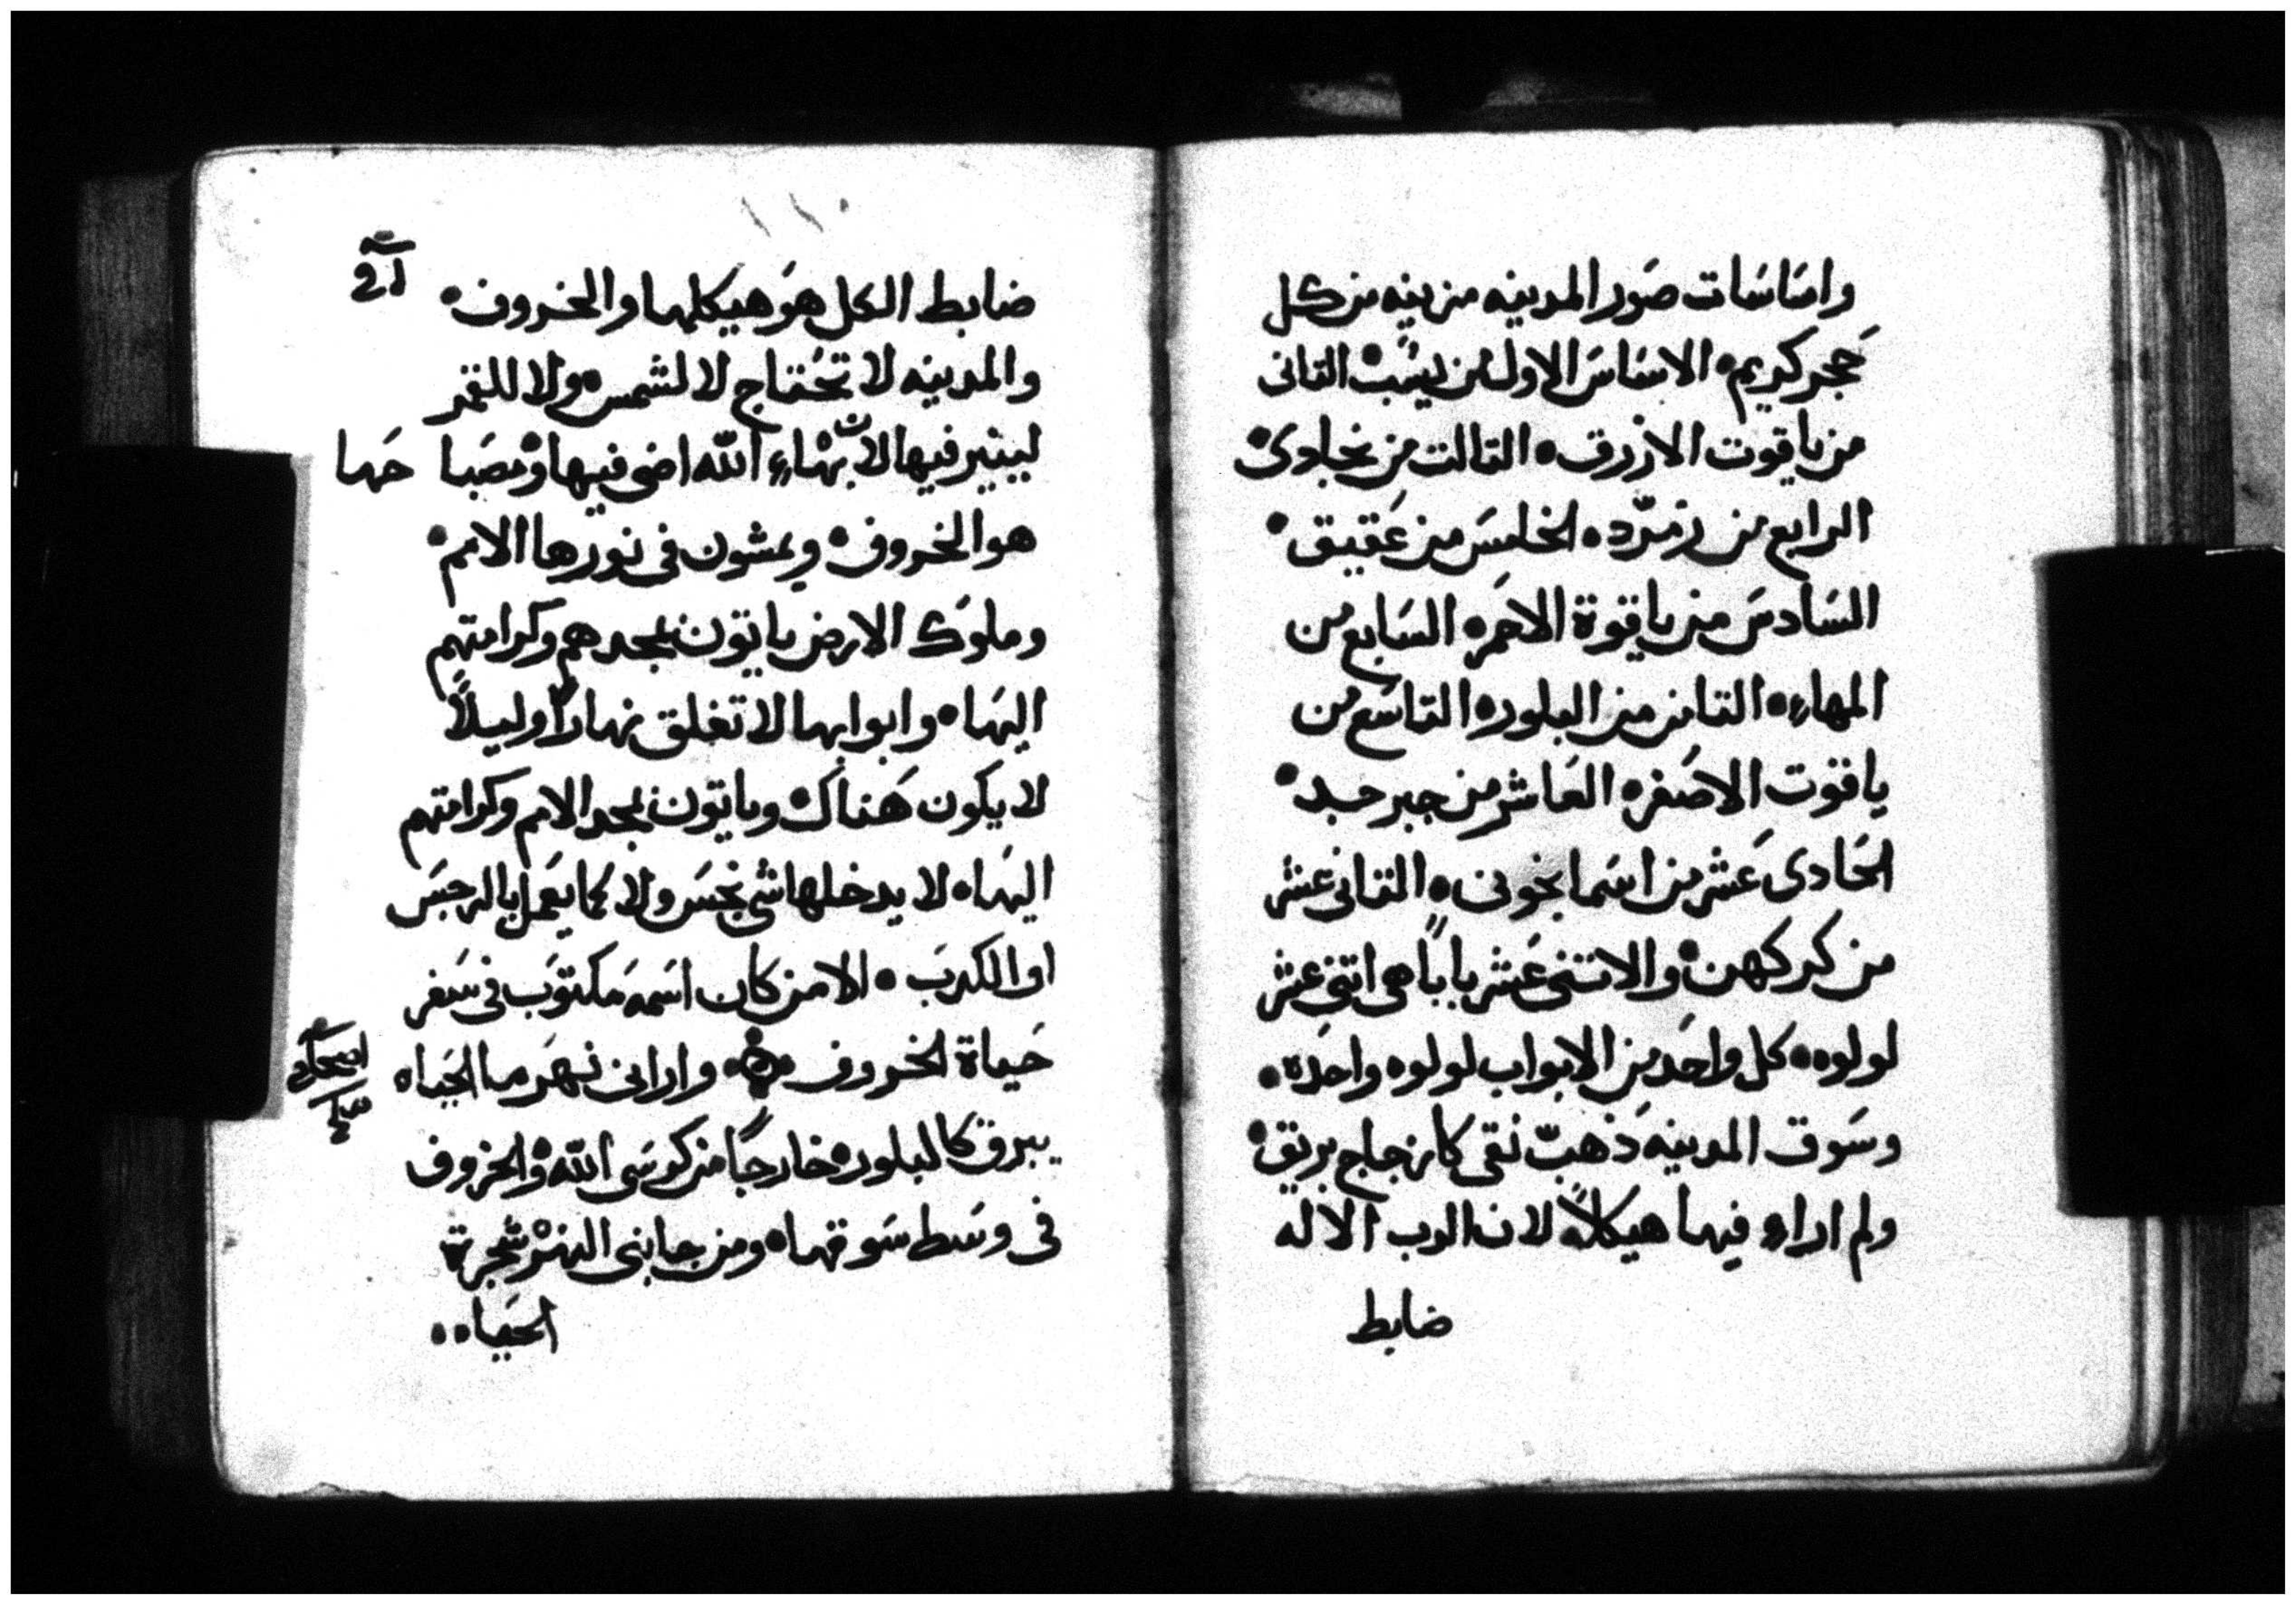 واسَاسَات صَور المدينه مزينه من كل
حَجر كريم • الاسَاسَ الاول من يسَب • التانى
من ياقوت الازرق • التالت من نجادى •
الرابع من زمرّد • الخامسَ من عَقيق •
السَادسَ من ياقوة الاحمَر • السَابع من
المهاء • التامن من البلور • التاسَع من
ياقوت الاصَفر • العَاشر من جبرجد •
الحَادى عَشر من اسَمانجونى • التانى عشر
من كركهن • والاتنى عَشر باباً هى اتنى عشر
لولوه • كل واحَد من الابواب لولوه واحَده •
وسَوق المدينه ذَهبّ نقى كازجاج بريق •
ولم اراء فيها هيكلاً لان الرب الاله
ضابط
ضابط الكل هوَ هيكلها والخروف •
والمدينه لا تحُتاج لا لشمس • ولا للقمر
لينير فيها لان بهَاء الله اضى فيها • ومصَبا حَها
هو الخروف • ويمشون فى نورها الامم •
وملوك الارض ياتون بمجدهم وكرامتهم
اليهَا • وابوابها لا تغلق نهاراً وليلاً
لا يكون هَناك • وياتون بمجد الامم وكرامتهم
اليهَا • لا يدخلها شى نجسَ ولا مما يعَمل بالرجسَ
او الكدبَ • الا من كان اسَمه مَكتوَب فى سَفر
حَياة الخروف • وارانى نهَر ما الحيَاه
يبرق كالبلور • خارجاً من كرسَى الله • والخروف
فى وسَط سَوقها • ومن جابنى النهَر شجرة
الحيَاه ••